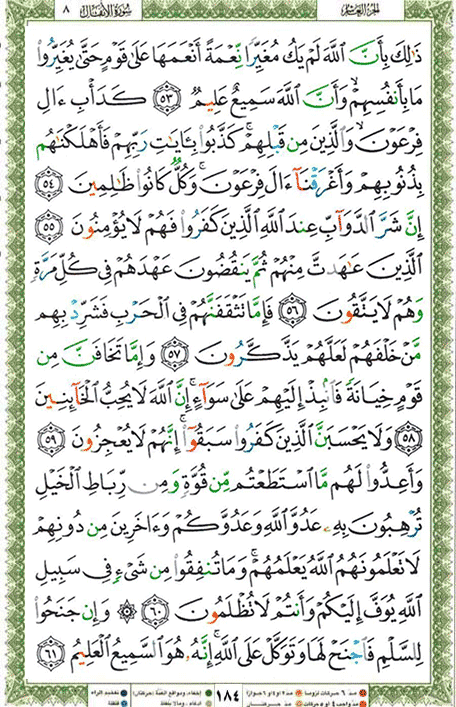 الجزء العاشر ٨ سورة الأنفال
ذَٰلِكَ بِأَنَّ ٱللَّهَ لَمْ يَكُ مُغَيِّرًا نِّعْمَةً أَنْعَمَهَا عَلَىٰ قَوْمٍ حَتَّىٰ يُغَيِّرُوا۟
مَا بِأَنفُسِهِمْ ۙ وَأَنَّ ٱللَّهَ سَمِيعٌ عَلِيمٌ ٥٣ كَدَأْبِ ءَالِ
فِرْعَوْنَ ۙ وَٱلَّذِينَ مِن قَبْلِهِمْ ۚ كَذَّبُوا۟ بِـَٔايَٰتِ رَبِّهِمْ فَأَهْلَكْنَٰهُم
بِذُنُوبِهِمْ وَأَغْرَقْنَآ ءَالَ فِرْعَوْنَ ۚ وَكُلٌّ كَانُوا۟ ظَٰلِمِينَ ٥٤
إِنَّ شَرَّ ٱلدَّوَآبِّ عِندَ ٱللَّهِ ٱلَّذِينَ كَفَرُوا۟ فَهُمْ لَا يُؤْمِنُونَ ٥٥
ٱلَّذِينَ عَٰهَدتَّ مِنْهُمْ ثُمَّ يَنقُضُونَ عَهْدَهُمْ فِى كُلِّ مَرَّةٍ
وَهُمْ لَا يَتَّقُونَ ٥٦ فَإِمَّا تَثْقَفَنَّهُمْ فِى ٱلْحَرْبِ فَشَرِّدْ بِهِم
مَّنْ خَلْفَهُمْ لَعَلَّهُمْ يَذَّكَّرُونَ ٥٧ وَإِمَّا تَخَافَنَّ مِن
قَوْمٍ خِيَانَةً فَٱنۢبِذْ إِلَيْهِمْ عَلَىٰ سَوَآءٍ ۚ إِنَّ ٱللَّهَ لَا يُحِبُّ ٱلْخَآئِنِينَ
٥٨ وَلَا يَحْسَبَنَّ ٱلَّذِينَ كَفَرُوا۟ سَبَقُوٓا۟ ۚ إِنَّهُمْ لَا يُعْجِزُونَ ٥٩
وَأَعِدُّوا۟ لَهُم مَّا ٱسْتَطَعْتُم مِّن قُوَّةٍ وَمِن رِّبَاطِ ٱلْخَيْلِ
تُرْهِبُونَ بِهِۦ عَدُوَّ ٱللَّهِ وَعَدُوَّكُمْ وَءَاخَرِينَ مِن دُونِهِمْ
لَا تَعْلَمُونَهُمُ ٱللَّهُ يَعْلَمُهُمْ ۚ وَمَا تُنفِقُوا۟ مِن شَىْءٍ فِى سَبِيلِ
ٱللَّهِ يُوَفَّ إِلَيْكُمْ وَأَنتُمْ لَا تُظْلَمُونَ ٦٠ ۞ وَإِن جَنَحُوا۟
لِلسَّلْمِ فَٱجْنَحْ لَهَا وَتَوَكَّلْ عَلَى ٱللَّهِ ۚ إِنَّهُۥ هُوَ ٱلسَّمِيعُ ٱلْعَلِيمُ ٦١
١٨٤